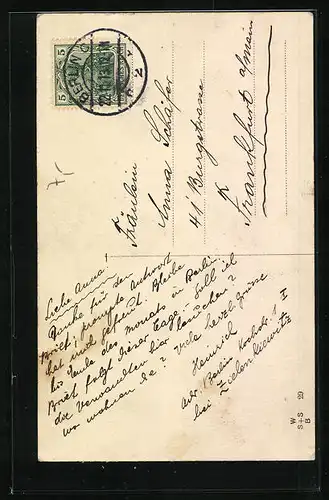 5
5
BERLIN
22.11.13.10-11N
Fräulein
Anna Schäfer
41 Burgstrasse
Frankfurt a/main
Liebe Anna
Danke für den
Brief, prompte Antwort
hat mich gefreut. Bleibe
bis Ende des Monats in Berlin.
Brief folgt dieser Tage. Soll ich
die Verwandten hier besuchen?
wo wohnen sie? Viele herzl. grüsse
Heinrich
adr. Berlin
bei Zielenkiewitz
W
S+S 29
B